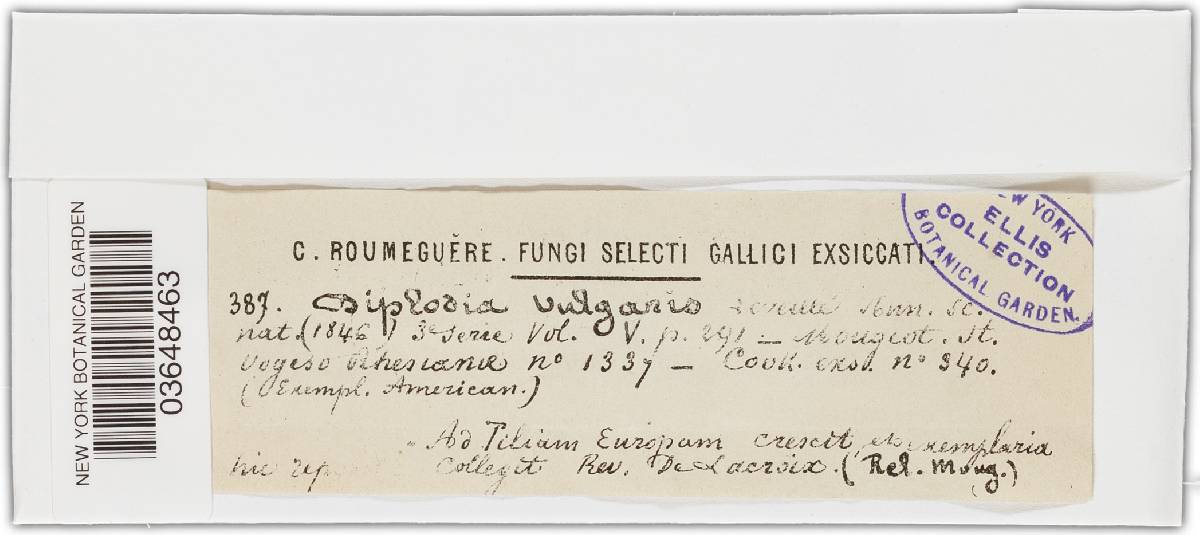 NEW YORK BOTANICAL GARDEN
03648463
NEW YORK
ELLIS
COLLECTION
BOTANICAL GARDEN.
C. ROUMEGUĚRE. FUNGI SELECTI GALLICI EXSICCATI.
387. Diplodia vulgaris Leveillé Ann. Sc.
nat. (1846) 3e Serie Vol. V. p. 291 — Mougeot. St.
Vogeso Rhesianæ no 1337 — Cook. exs. no 340.
(Exempl. American.)
Ad Tiliam Europam crescit, et exemplaria
hic rep Collegit Rev. De Lacroix. (Rel. Moug.)